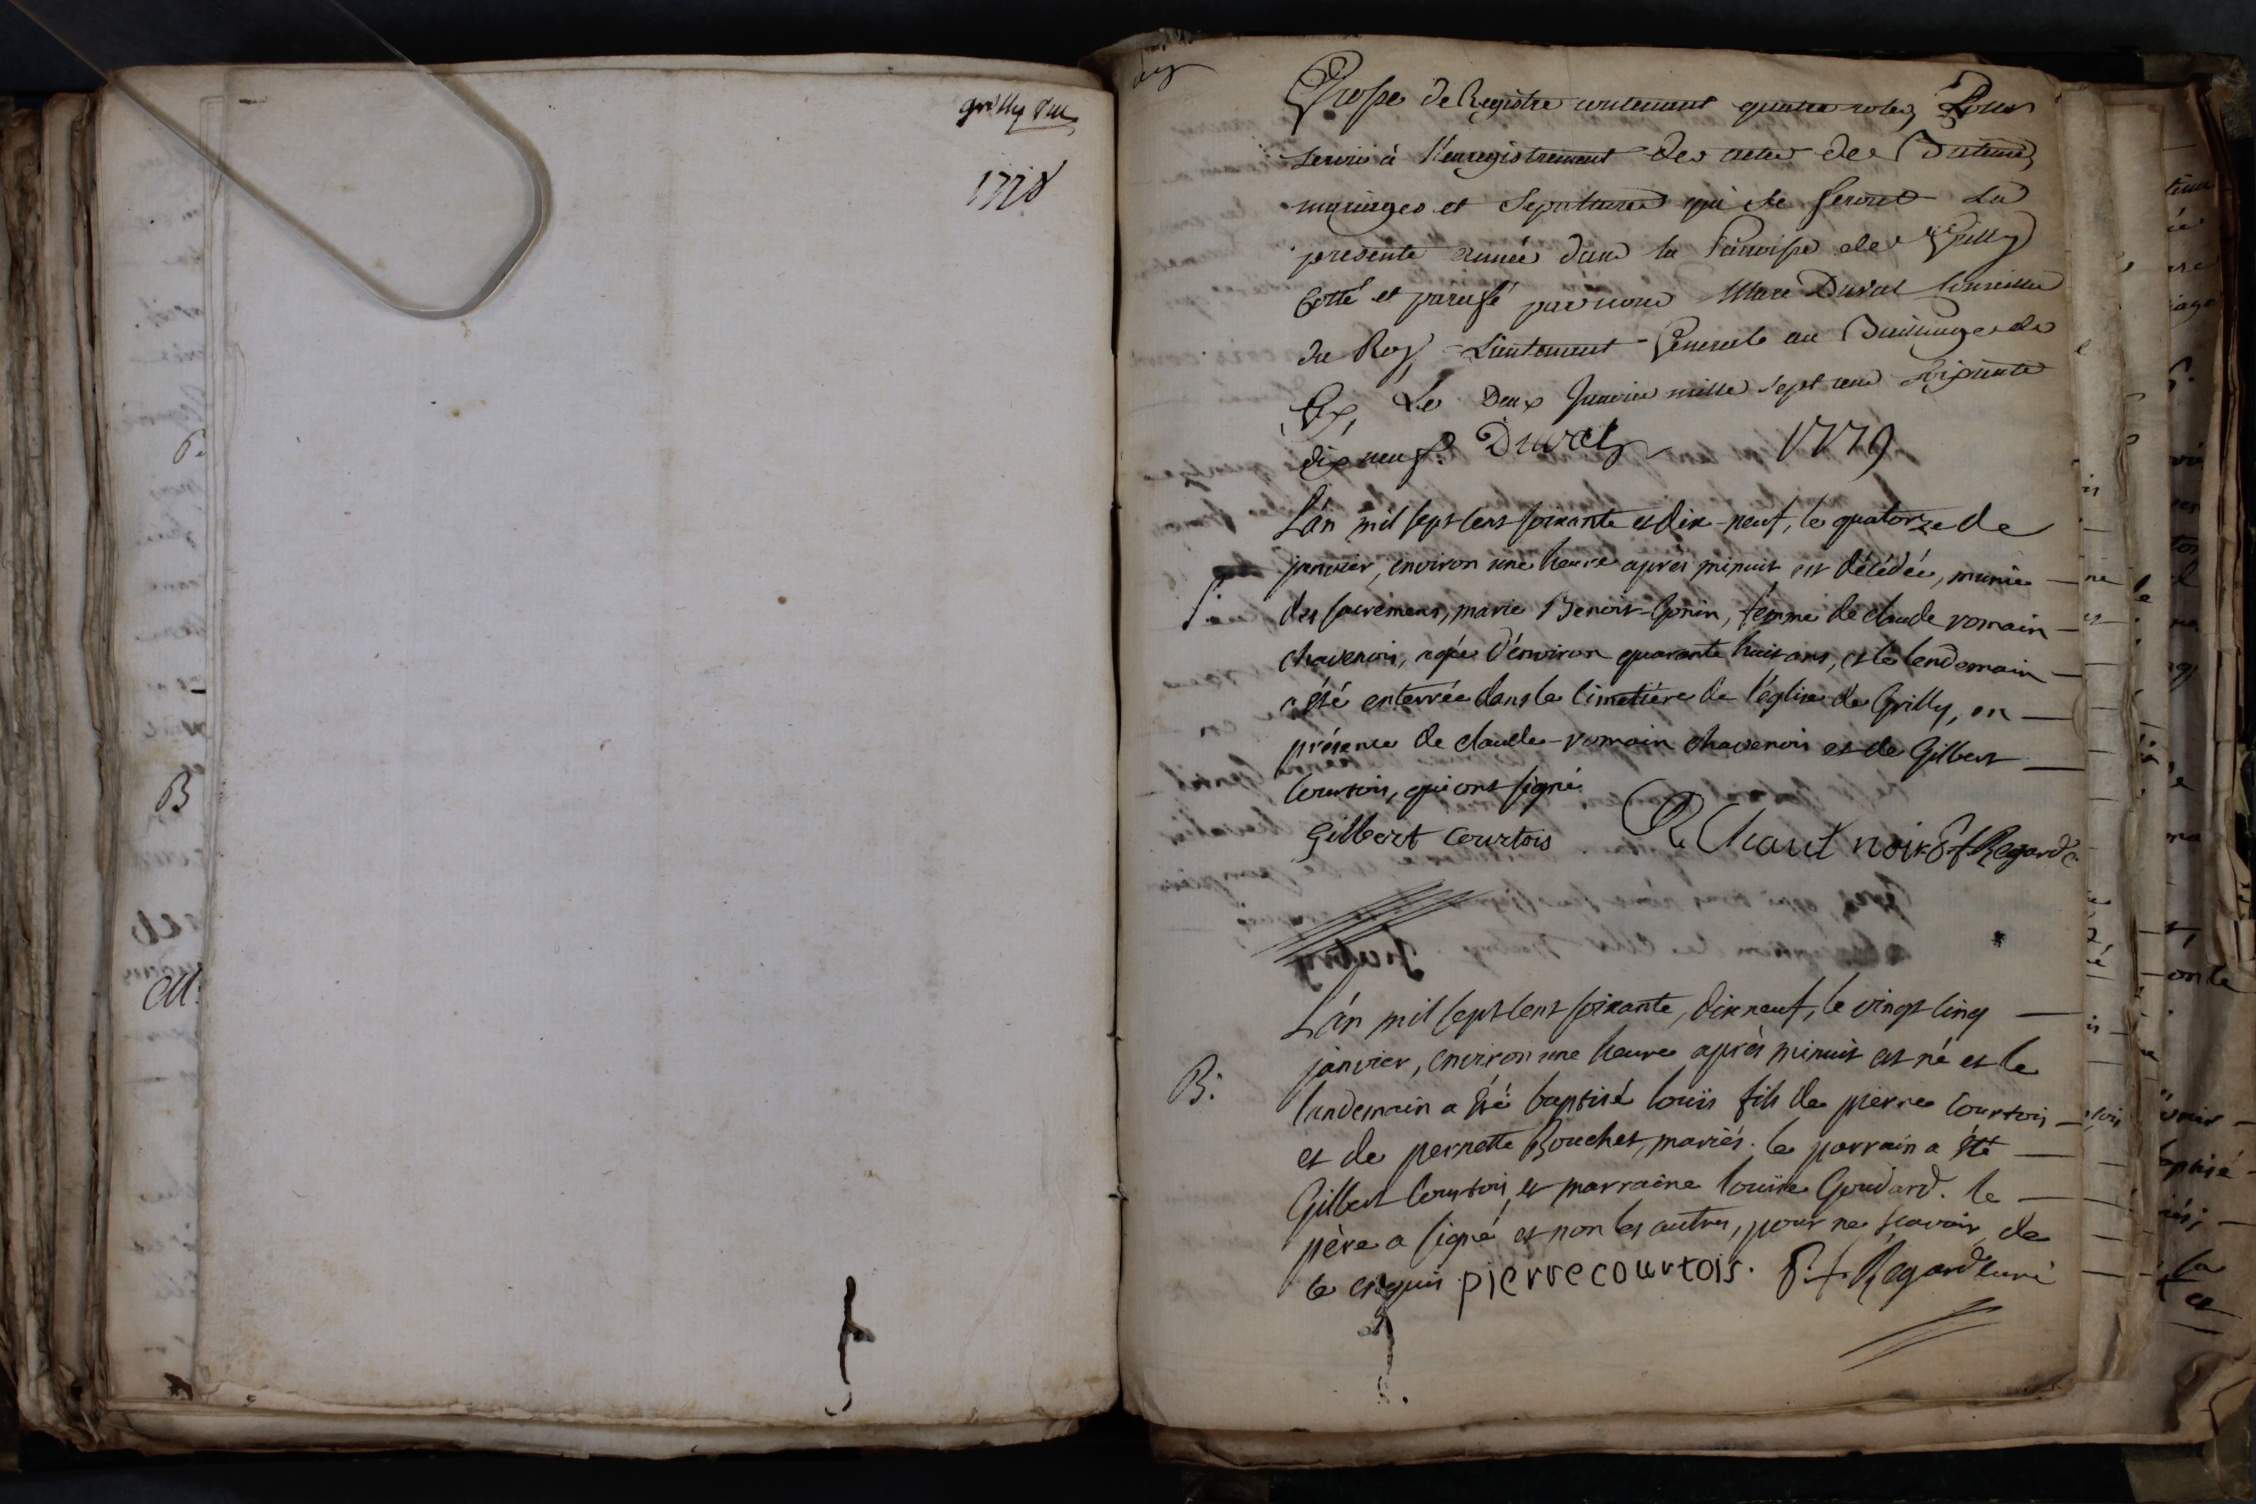 grilly
1778
Grosse de Registre contenant quatre roles, Pour
servir à l'enregistrement des actes de Batemes,
mariages et Sepultures qui se feront La
presente année dans la Paroisse de Grilly
Cotté et paraffé par nous Marc Duval Conseiller
du Roy, Lieutenant General au Bailliage de
Gex, Le Deux Janvier mille sept cent soixante
dix neuf. Duval 1779
L'an mil sept cent soixante et dix-neuf, le quatorze de
janvier, environ une heure après minuit, est décédée, munie
S.
des sacremens, marie Benoit-Gonin, femme de claude romain
chavenois, agée d'environ quarante huit ans, et le lendemain
a été enterrée dans le cimetière de l'église de Grilly, en
présence de claude-romain chavenois et de Gilbert
Courtois, qui ont signé.
Gilbert Courtois R Chautnoir P. f. Regard C.
L'an mil sept cent soixante, dix neuf, le vingt cinq
janvier, environ une heure après minuit est né et le
B.
landemain a été baptisé louïs fils de pierre Courtois
et de pernette Bouchet, mariés. le parrain a été
Gilbert Courtois, et marraine louïse Goudard. le
père a signé et non les autres, pour ne sçavoir, de
ce enquis pierre courtois. P. f. Regard curé
P.
B
M.